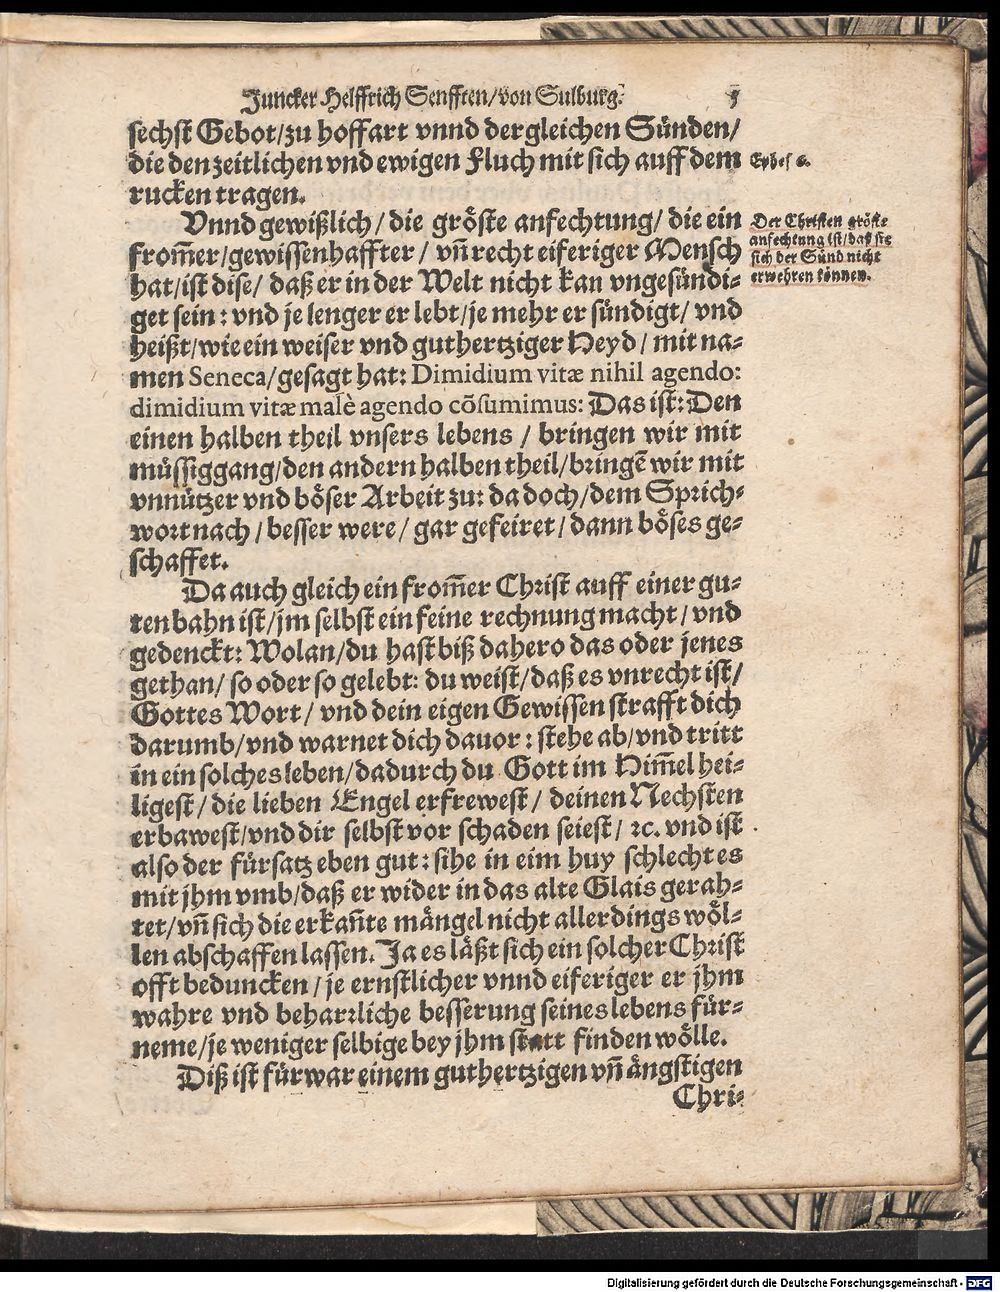 Juncker Helffrich Senfften/von Sulburg. 5
sechst Gebot/zu hoffart vnnd dergleichen Sünden/
die den zeitlichen vnd ewigen Fluch mit sich auff dem
rucken tragen.
Ephes 6.
Vnnd gewißlich/ die gröste anfechtung/ die ein
from̃er/gewissenhaffter/ vñ recht eiferiger Mensch
hat/ist dise/ daß er in der Welt nicht kan vngesündi-
get sein: vnd je lenger er lebt/je mehr er sündigt/ vnd
heißt/wie ein weiser vnd guthertziger Heyd/ mit na-
men Seneca/gesagt hat: Dimidium vitæ nihil agendo:
dimidium vitæ malè agendo cõsumimus: Das ist: Den
einen halben theil vnsers lebens / bringen wir mit
müssiggang/den andern halben theil/bringẽ wir mit
vnnützer vnd böser Arbeit zu: da doch/dem Sprich-
wort nach / besser were/ gar gefeiret/ dann böses ge-
schaffet.
Der Christen gröste
anfechtung ist/daß sie
sich der Sünd nicht
erwehren können.
Da auch gleich ein from̃er Christ auff einer gu-
ten bahn ist/jm selbst ein feine rechnung macht/ vnd
gedenckt: Wolan/du hast biß dahero das oder jenes
gethan/ so oder so gelebt: du weist/daß es vnrecht ist/
Gottes Wort/ vnd dein eigen Gewissen strafft dich
darumb/vnd warnet dich dauor: stehe ab/vnd tritt
in ein solches leben/dadurch du Gott im Him̃el hei-
ligest/ die lieben Engel erfrewest/ deinen Nechsten
erbawest/vnd dir selbst vor schaden seiest/ ꝛc. vnd ist
also der fürsatz eben gut: sihe in eim huy schlecht es
mit jhm vmb/daß er wider in das alte Glais gerah-
tet/vñ sich die erkañte mängel nicht allerdings wöl-
len abschaffen lassen. Ja es läßt sich ein solcher Christ
offt beduncken/je ernstlicher vnnd eiferiger er jhm
wahre vnd beharrliche besserung seines lebens für-
neme/je weniger selbige bey jhm statt finden wölle.
Diß ist fürwar einem guthertzigen vñ ängstigen
Chri-
Digitalisierung gefördert durch die Deutsche Forschungsgemeinschaft - DFG